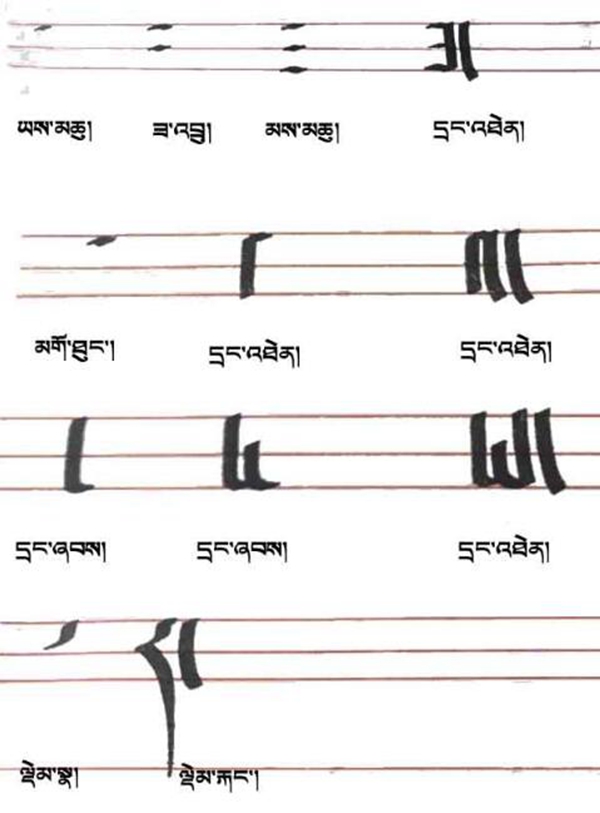 ཡས་མཆུ། ཟ་འབྲུ། མས་མཆུ། དྲང་འཐེན།
མགོ་ཐུང་། དྲང་འཐེན། དྲང་འཐེན།
དྲང་ཞབས། དྲང་ཞབས། དྲང་འཐེན།
ལྡེམ་སྣ། ལྡེམ་རྐང་།